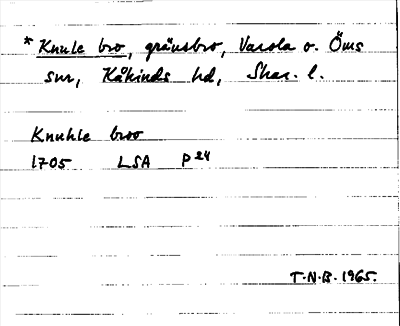 * Knule bro, gränsbro, Varola o. Öms
snr, Kåkinds hd, Skar. l.
Knuhle broo
1705 LSA P 24
T.N.B. 1965.